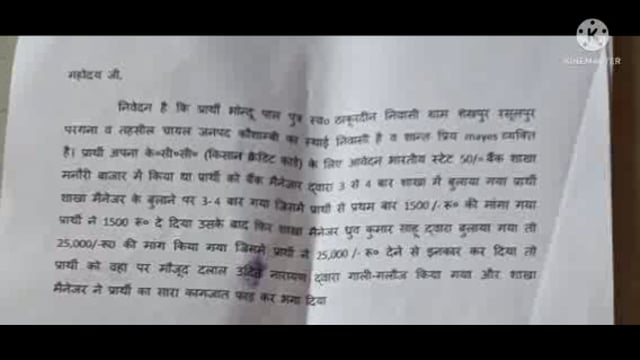 KINEMASTER
महोदय जी,
निवेदन है कि प्रार्थी भोन्दू पाल पुत्र स्व० ठाकुरदीन निवासी ग्राम शेखपुर रसूलपुर
परगना व तहसील चायल जनपद कौशाम्बी का स्थाई निवासी है व शान्त प्रिय mayes व्यक्ति
है। प्रार्थी अपना के०सी०सी० (किसान क्रेडिट कार्ड) के लिए आवेदन भारतीय स्टेट 50/= बैंक शाखा
मनौरी बाजार में किया था प्रार्थी को बैंक मैनेजार द्वारा 3 से 4 बार शाखा में बुलाया गया प्रार्थी
शाखा मैनेजर के बुलाने पर 3-4 बार गया जिसमे प्रार्थी से प्रथम बार 1500/-रू० की मांगा गया
प्रार्थी ने 1500 रू० दे दिया उसके बाद फिर शाखा मैनेजर ध्रुव कुमार साहू द्वारा बुलाया गया तो
25,000/-रू0 की मांग किया गया जिसमे प्रार्थी ने 25,000 /- रू० देने से इनकार कर दिया तो
प्रार्थी को वहा पर मौजूद दलाल नारायण द्वारा गाली-गलौज किया गया और शाखा
मैनेजर ने प्रार्थी का सारा कागजात फाड़ कर भगा दिया